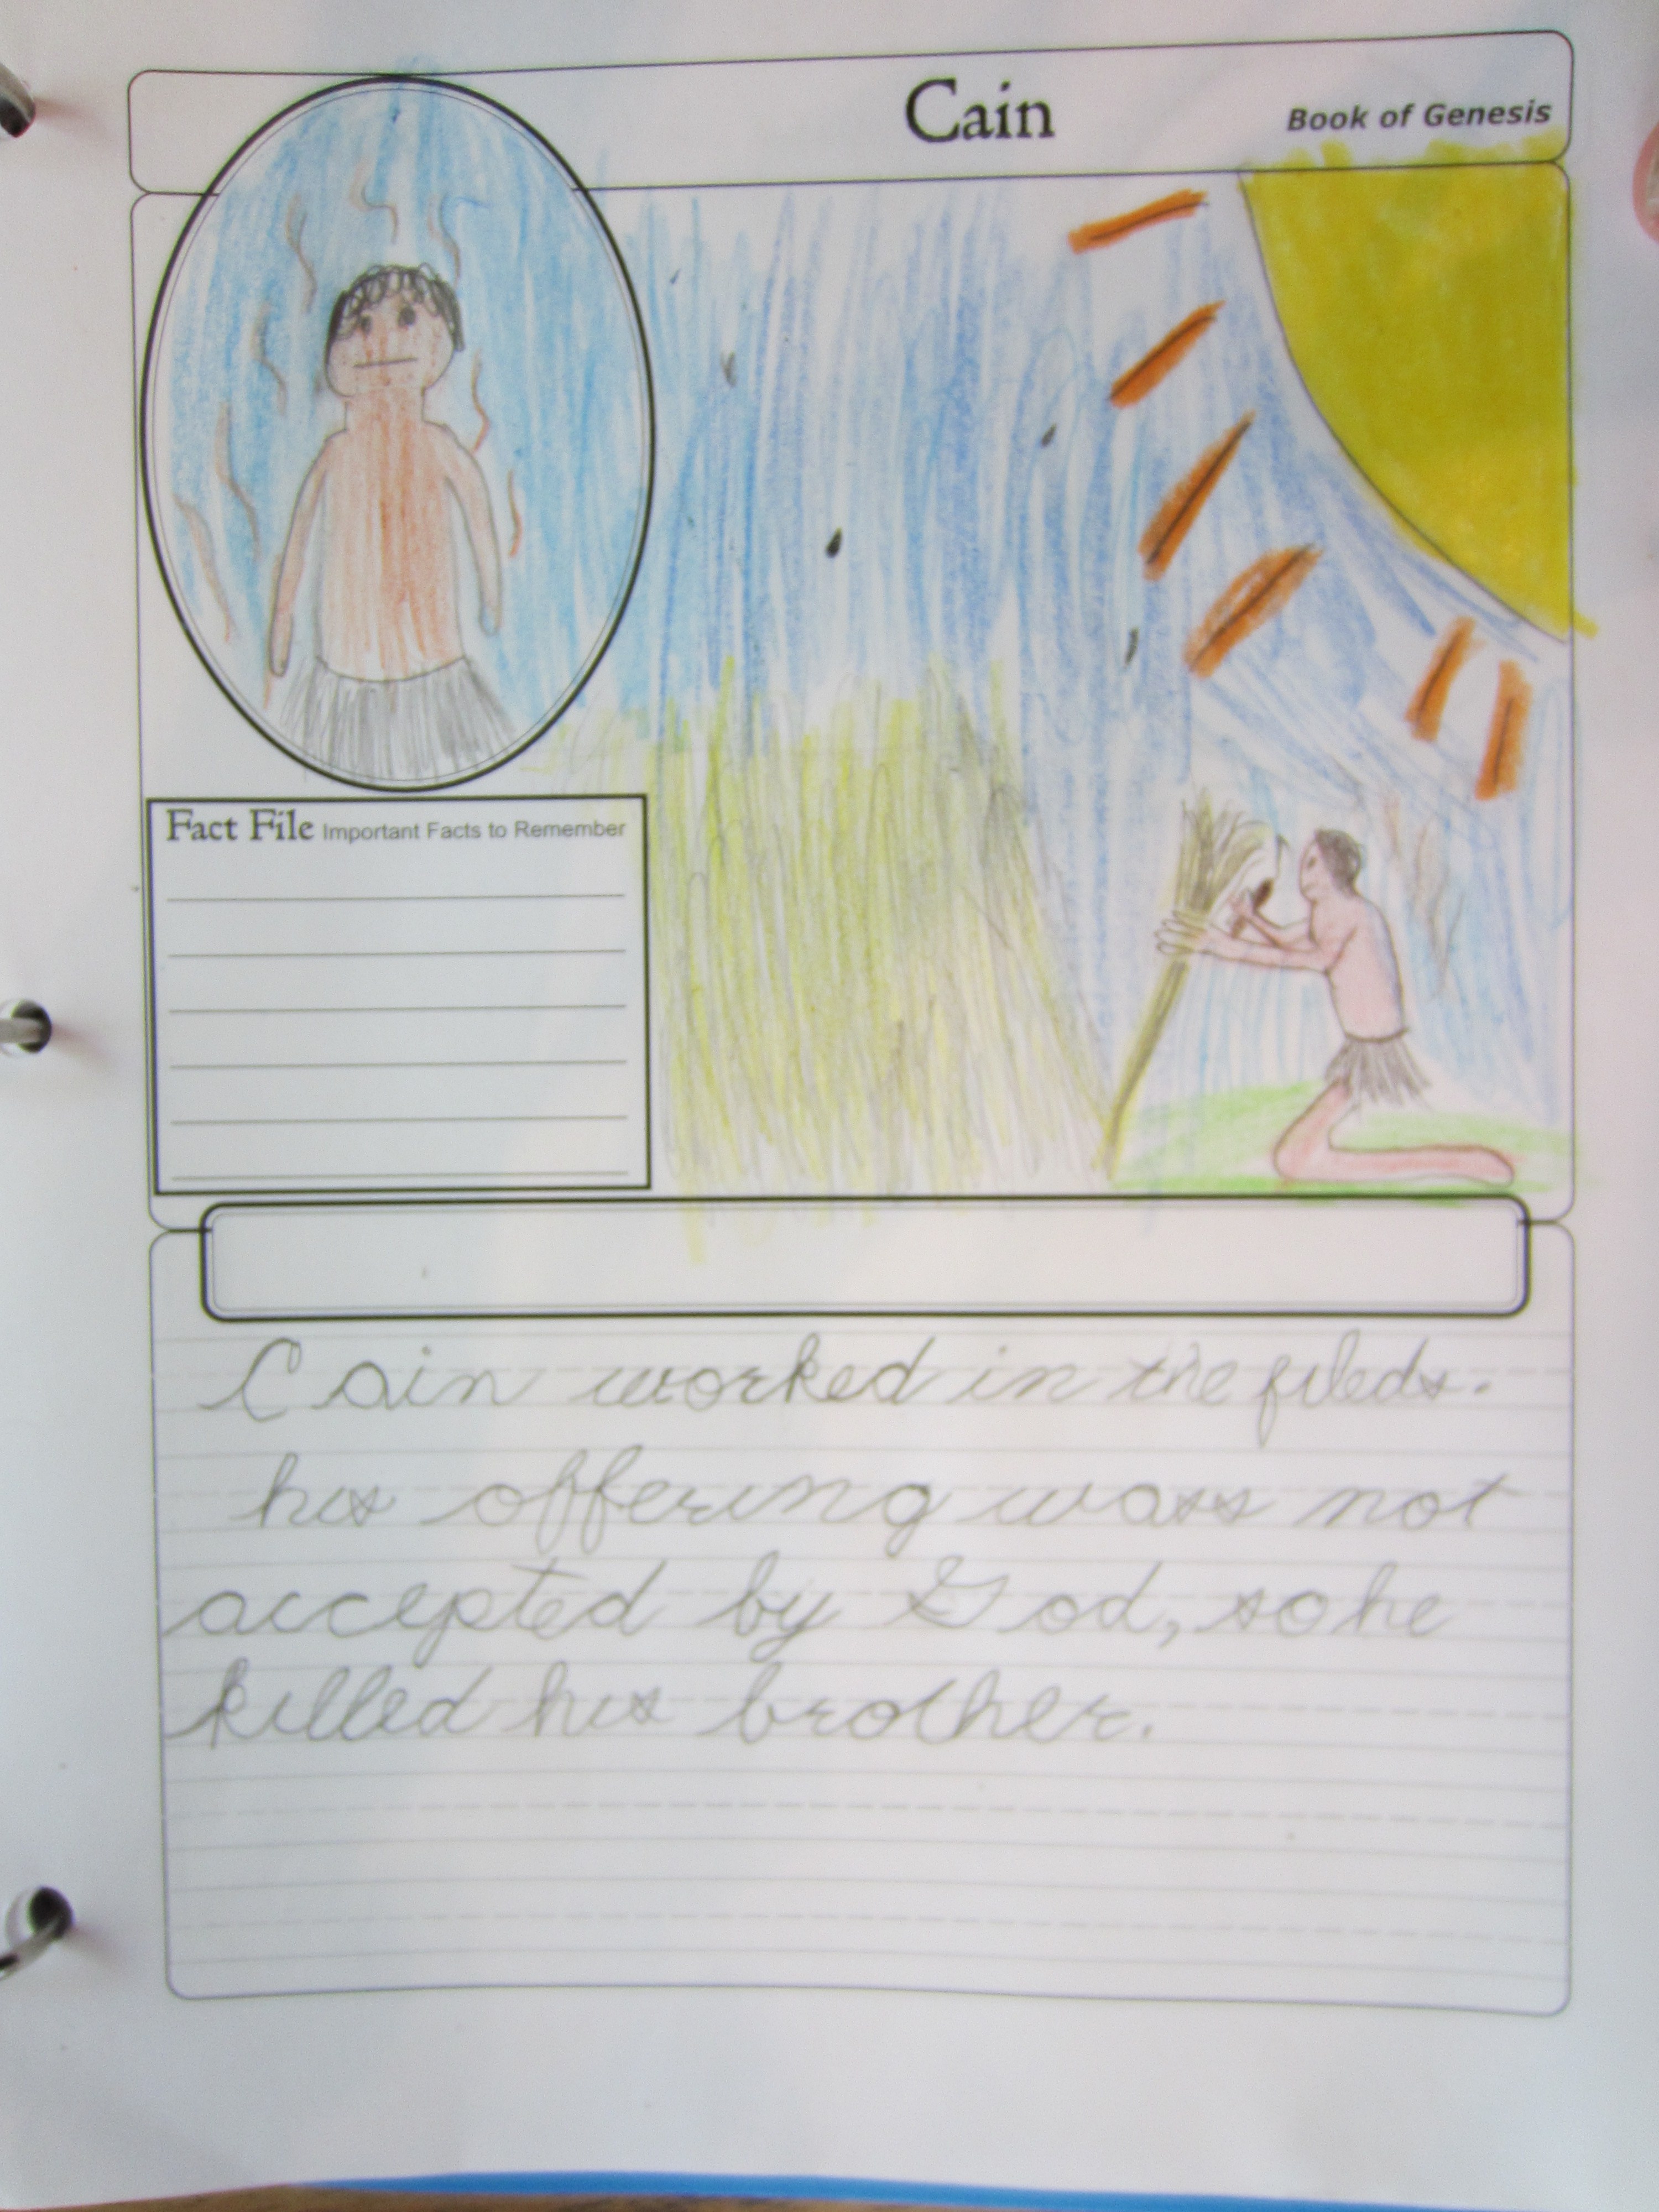 Cain
Book of Genesis
Fact File Important Facts to Remember
Cain worked in the fileds.
his offering wass not
accepted by God, so he
killed his brother.